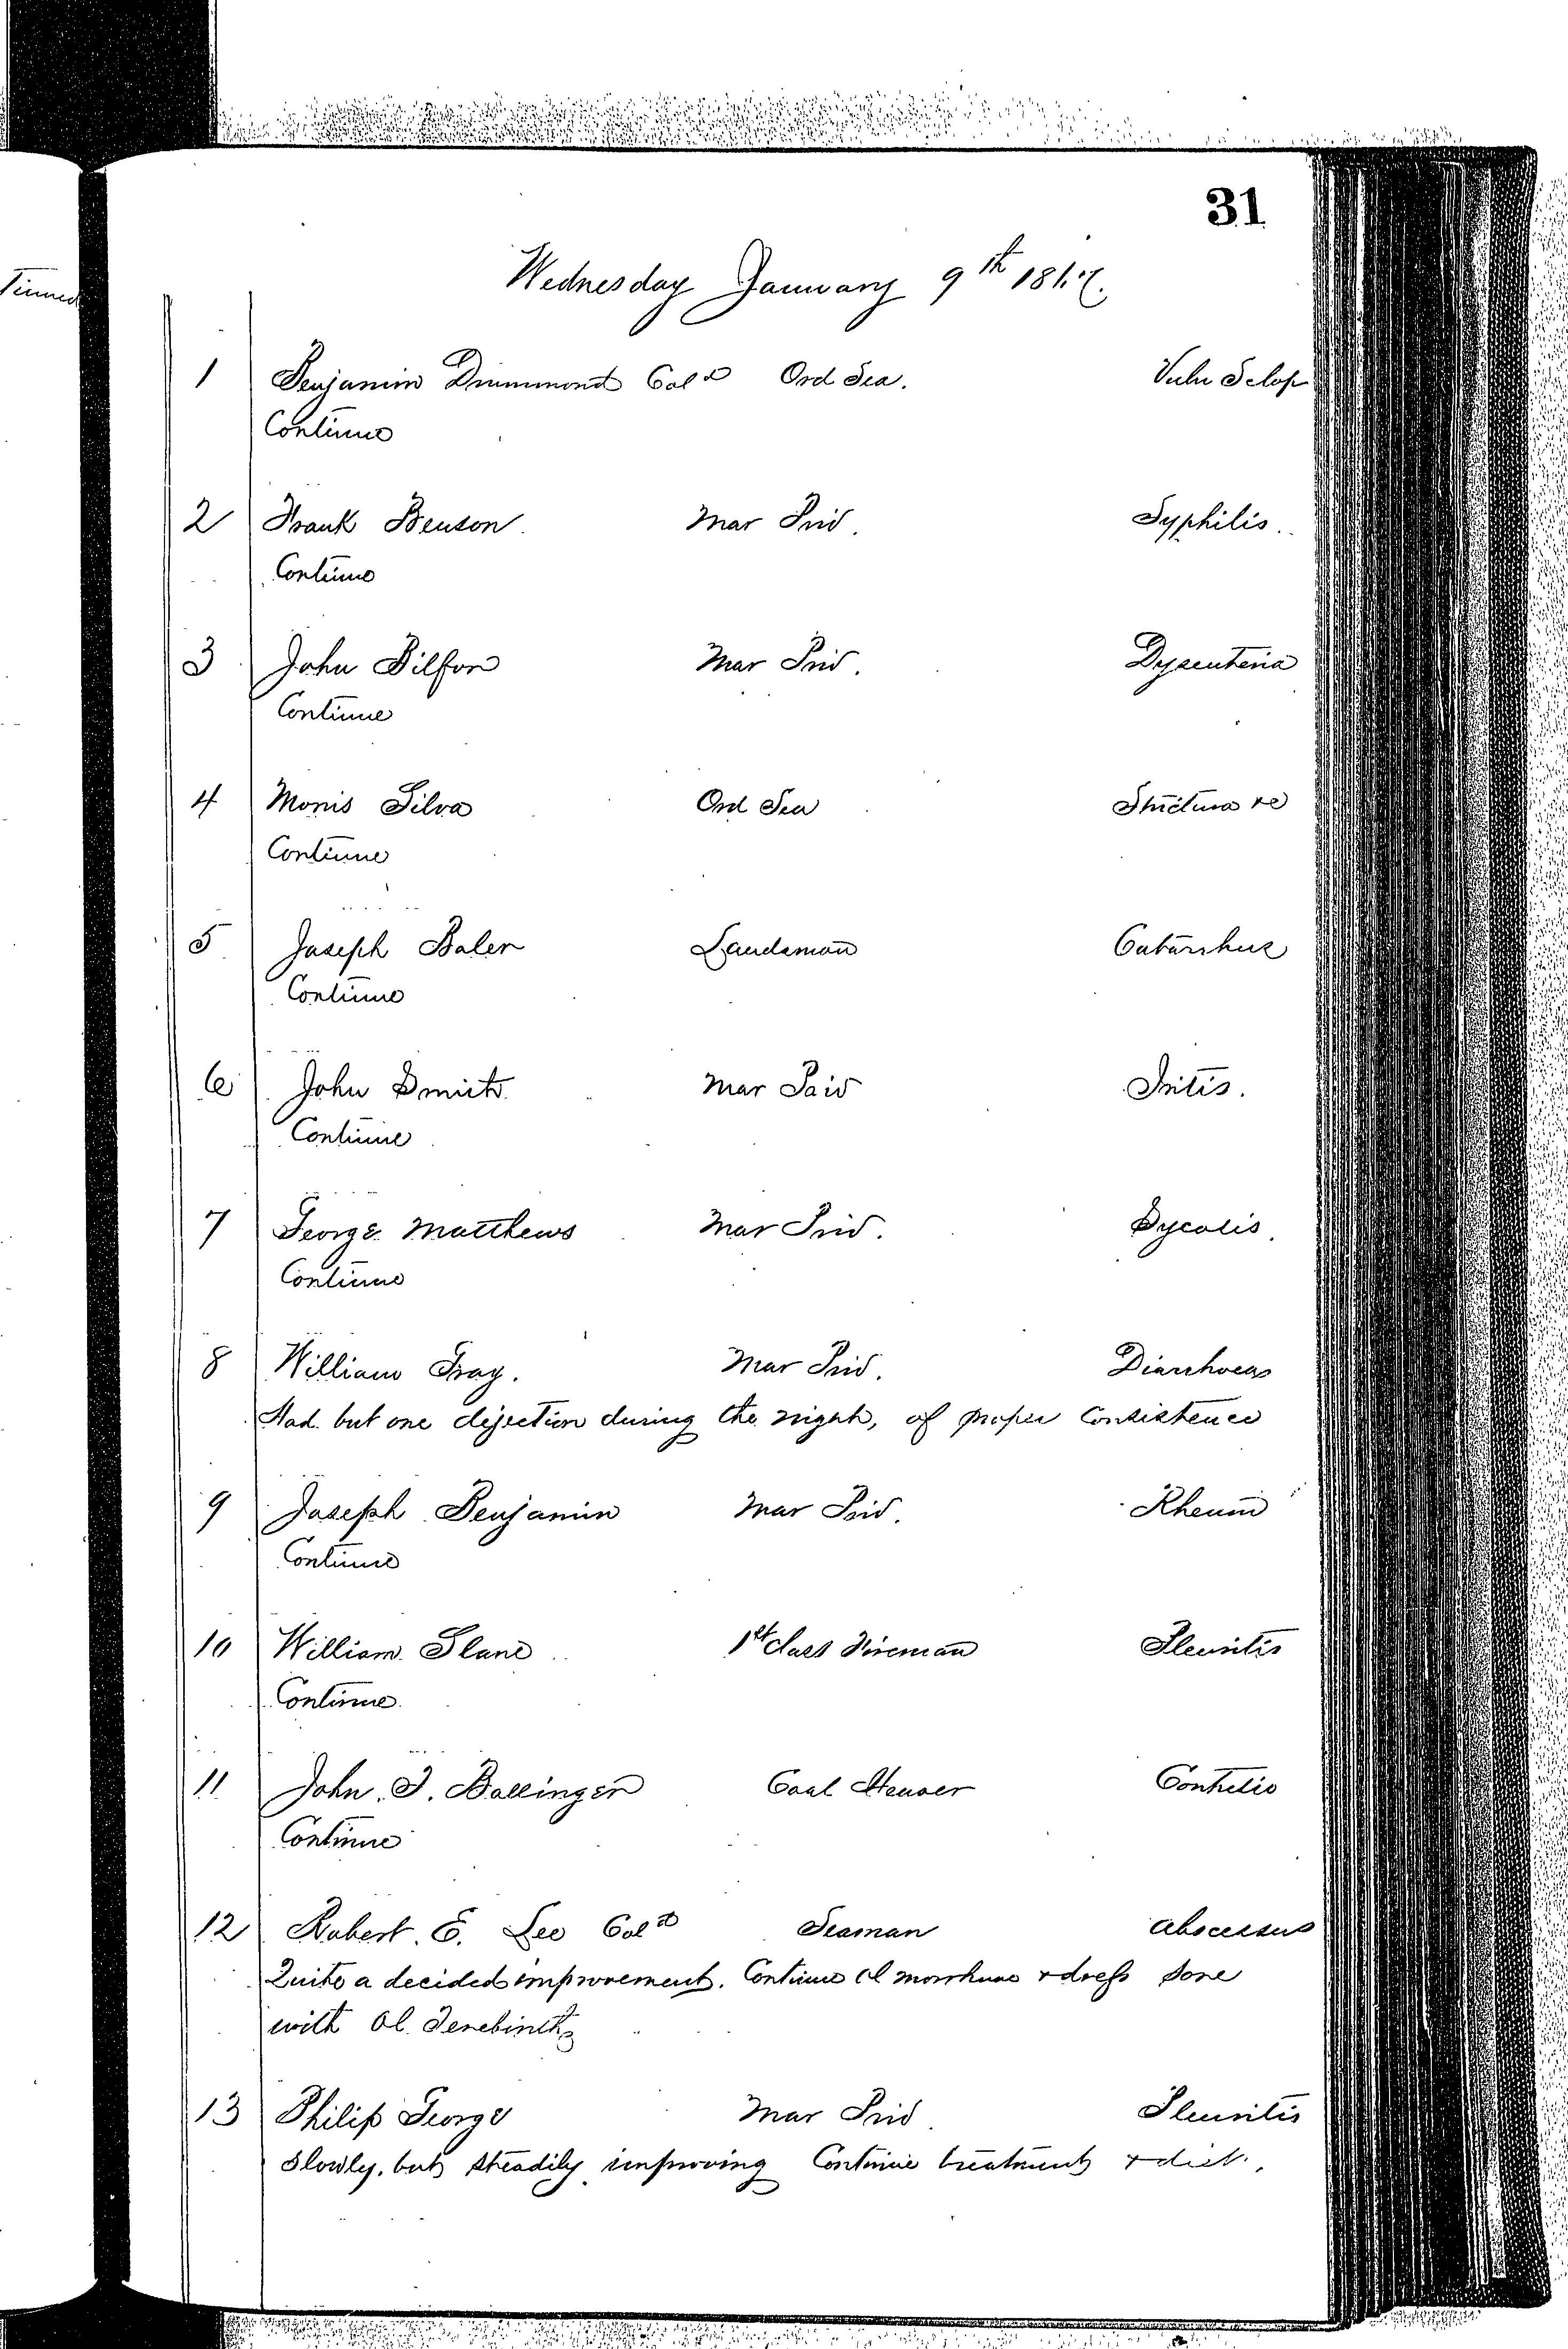 31
Wednesday January 9th 1867.
1 Benjamin Drummond Cold Ord Sea. Vuln Sclop
Continue
2 Frank Benson. Mar Priv. Syphilis.
Continue
3 John Pilfor Mar Priv. Dysenteria
Continue
4 Morris Silva Ord Sea Strictura re
Continue
5 Joseph Baler Landsman Catarrhus
Continue
6 John Smith Mar Priv Iritis.
Continue
7 George Matthews Mar Priv. Sycosis.
Continue
8 William Gray. Mar Priv. Diarrhoea
Had but one dejection during the night, of proper consistence
9 Joseph Benjamin Mar Priv. Rheum
Continue
10 William Slane 1st Class Fireman Pleuritis
Continue
11 John. J. Ballinger Coal Heaver Contusio
Continue
12 Robert. E. Lee Cold Seaman Abscessus
Quite a decided improvement. Continue Ol morrhuae & dress sore
with Ol. Terebinth
13 Philip George Mar Priv Pleuritis
Slowly, but steadily improving Continue treatment & diet.